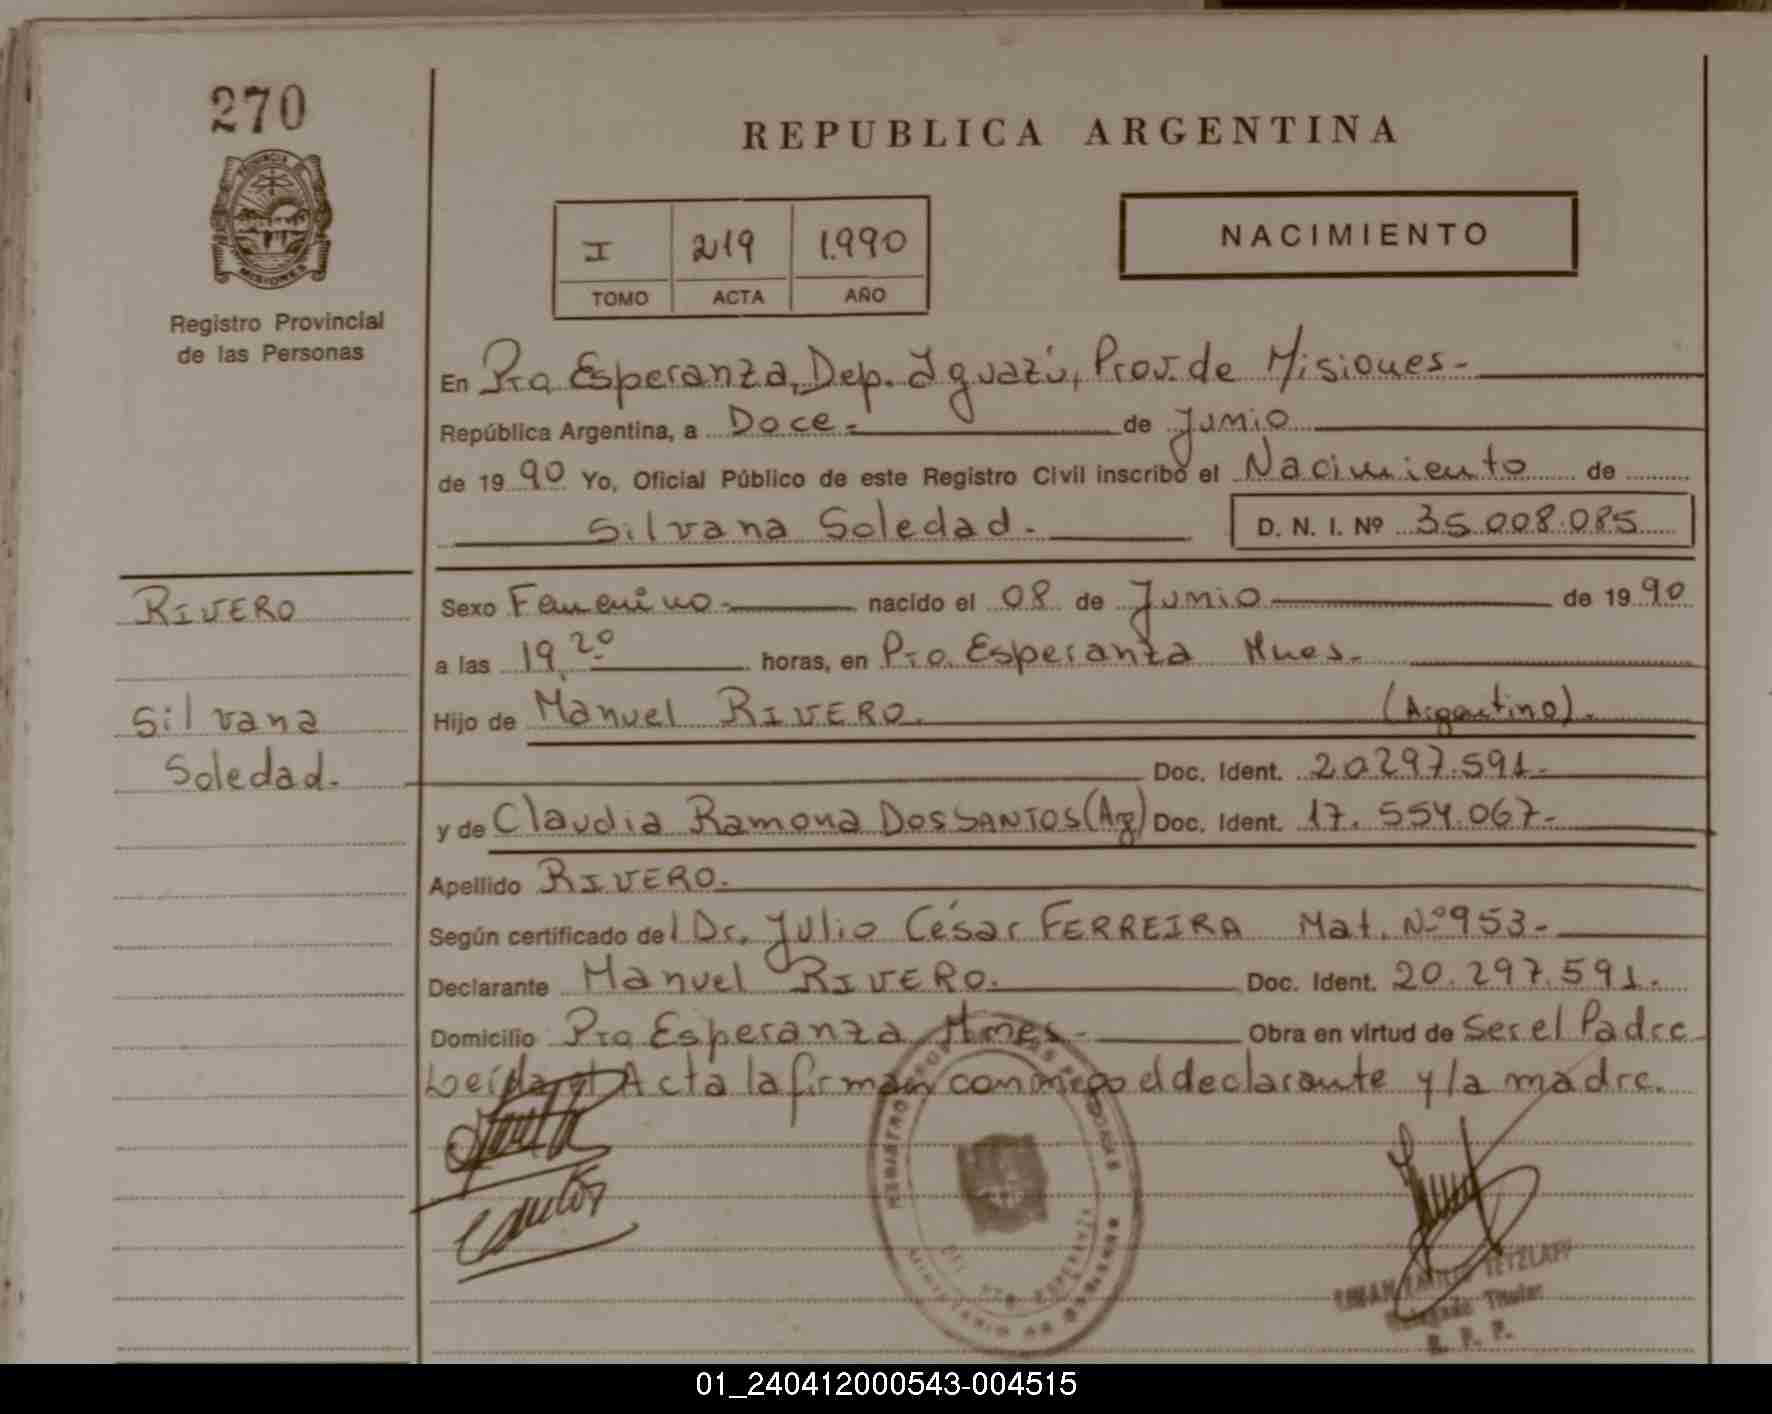 270
PROVINCIA
MISIONES
Registro Provincial
de las Personas
REPUBLICA ARGENTINA
I 219 1.990
TOMO ACTA AÑO
NACIMIENTO
En Pto Esperanza, Dep. Iguazú, Prov. de Misiones-
República Argentina, a Doce.- de Junio
de 1990 Yo, Oficial Público de este Registro Civil inscribo el Nacimiento de
Silvana Soledad.- D. N. I. Nº 35.008.085
RIVERO
Sexo Femenino- nacido el 08 de Junio de 1990
a las 19,20 horas, en Pto. Esperanza Mnes.
Silvana
Hijo de Manuel RIVERO. (Argentino).
Soledad.
Doc. Ident. 20.297.591-
y de Claudia Ramona DOS SANTOS (Arg) Doc. Ident. 17.554.067-
Apellido RIVERO.
Según certificado del Dr. Julio César FERREIRA Mat. Nº 953-
Declarante Manuel RIVERO. Doc. Ident. 20.297.591.
Domicilio Pto Esperanza Mnes- Obra en virtud de Ser el Padre
Leída el Acta la firman conmigo el declarante y la madre.
REGISTRO PERSONAS
PTO. ESPERANZA
MINISTERIO DE GOBIERNO
TETZLAFF
Delegado Titular
R. P. P.
01_240412000543-004515